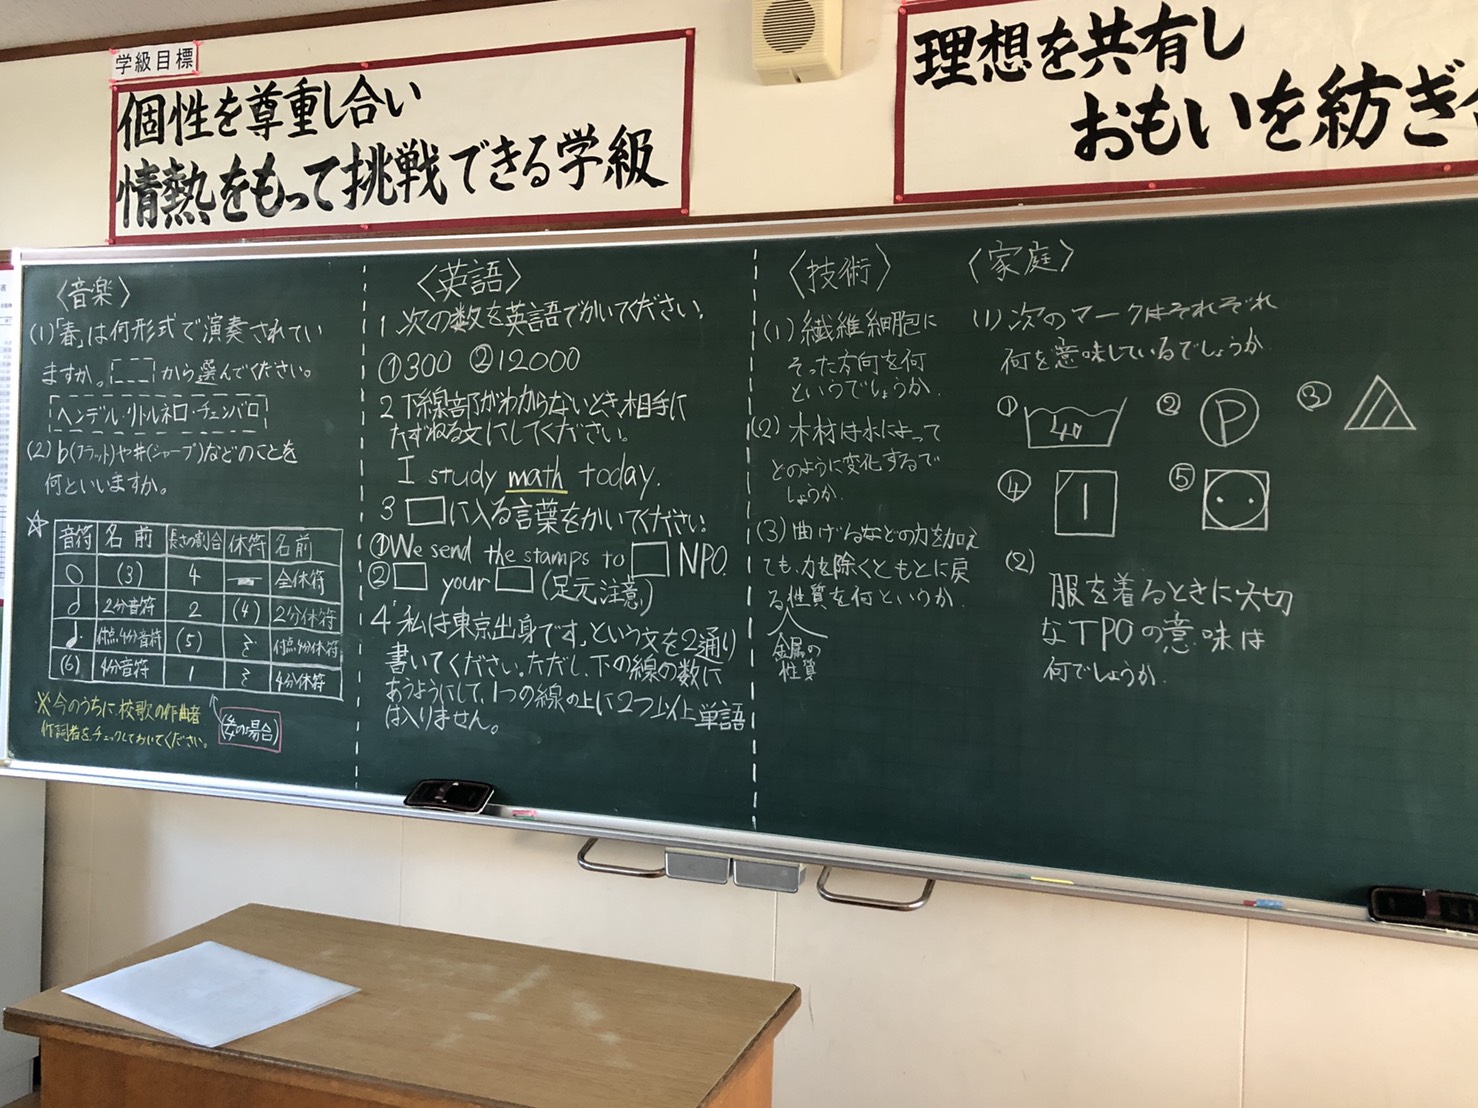 学級目標
個性を尊重し合い
情熱をもって挑戦できる学級
理想を共有し
おもいを紡ぎ
〈音楽〉
(1)「春」は何形式で演奏されてい
ますか。 から選んでください。
ヘンデル・リトルネロ・チェンバロ
(2) b(フラット)や#(シャープ)などのことを
何といいますか。
☆
音符 名前 長さの割合 休符 名前
(3) 4 全休符
2分音符 2 (4) 2分休符
付点4分音符 (5) 付点4分休符
(6) 4分音符 1 4分休符
※今のうちに、校歌の作曲者
作詞者をチェックしておいてください。
〈英語〉
1 次の数を英語でかいてください。
①300 ②12000
2 下線部がわからないとき、相手に
たずねる文にしてください。
I study math today.
3 □に入る言葉をかいてください。
①We send the stamps to □ NPO.
②□ your □ (足元注意)
4「私は東京出身です。」という文を2通り
書いてください。ただし、下の線の数に
あうようにして、1つの線の上に2つ以上単語
は入りません。
〈技術〉
(1) 繊維細胞に
そった方向を何
というでしょうか.
(2) 木材は水によって
どのように変化するで
しょうか.
(3) 曲げるなどの力を加え
ても、力を除くともとに戻
る性質を何というか.
金属の
性質
〈家庭〉
(1) 次のマークはそれぞれ
何を意味しているでしょうか.
① 40 ② P ③
④ ⑤
(2)
服を着るときに大切
なTPOの意味は
何でしょうか.